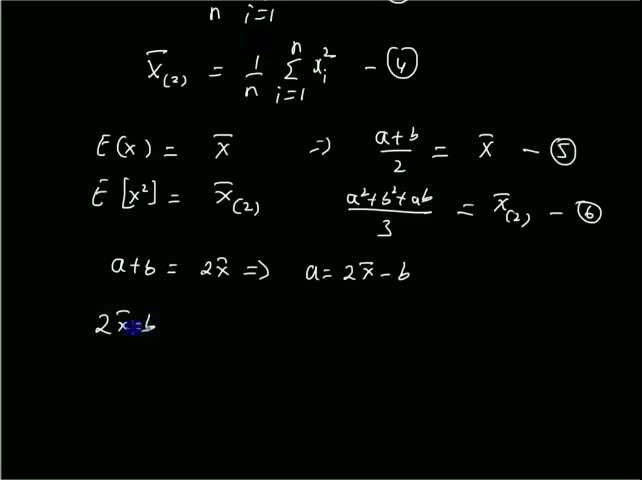 n i=1
x̄(2) = 1/n Σ i=1 n xi² - ④
E(x) = x̄ => a+b/2 = x̄ - ⑤
E[x²] = x̄(2) a²+b²+ab/3 = x̄(2) - ⑥
a+b = 2x̄ => a = 2x̄ - b
2x̄-b